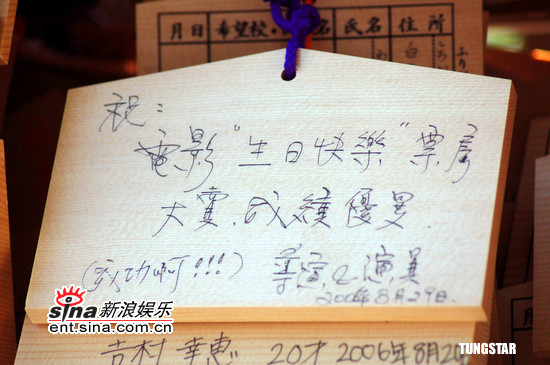 月日 希望校・ 名 氏名 住所
祝：
電影“生日快樂”票房
大賣.成績優異.
(成功啊!!!) 導演&演員
2006年8月29日.
sina 新浪娱乐
ent.sina.com.cn
吉村 幸恵 20才 2006年8月2
TUNGSTAR